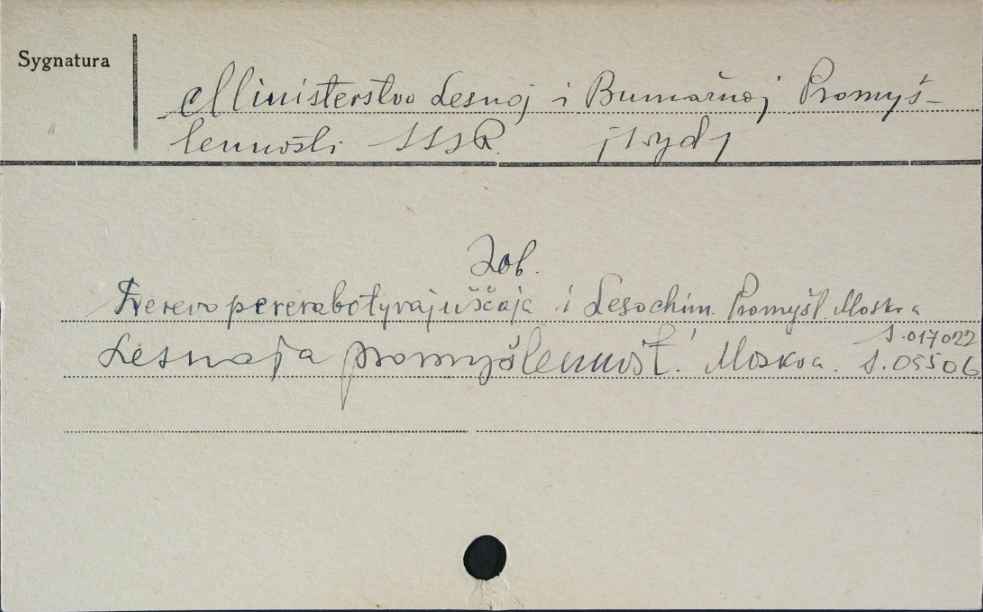 Sygnatura
Ministerstvo Lesnoj i Bumažnoj Promyš-
lennosti SSSR
Zob.
Derevopererabotyvajuščaja i Lesochim. Promyšl Moskva
S.017022
Lesnaja promyšlennost'. Moskva. S.05506